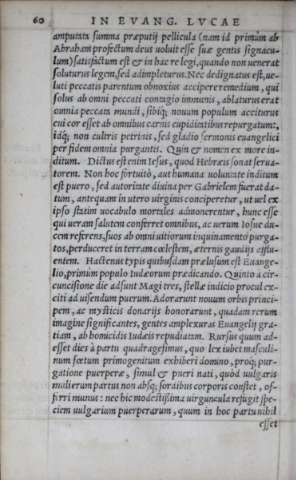 60 IN EVANG. LVCAE
amputata summa præputij pellicula (nam id primùm ab
Abraham profectum deus uoluit esse suæ gentis signacu-
lum) satisfactum est & in hac re legi, quando non uenerat
soluturus legem, sed adimpleturus. Nec dedignatus est, ue-
luti peccatis parentum obnoxius accipere remedium, qui
solus ab omni peccati contagio immunis, ablaturus erat
omnia peccata mundi, sibiq; nouum populum acciturus
cui cor esset ab omnibus carnis cupiditatibus repurgatum:
idq; non cultris petrinis, sed gladio sermonis euangelici
per fidem omnia purgantis. Quin & nomen ex more in-
ditum. Dictus est enim Iesus, quod Hebræis sonat serua-
torem. Non hoc fortuitò, aut humana uoluntate inditum
est puero, sed autoritate diuina per Gabrielem fuerat da-
tum, antequam in utero uirginis conciperetur, ut uel ex
ipso statim uocabulo mortales admonerentur, hunc esse
qui ueram salutem conferret omnibus, ac uerum Iosue du-
cem referens, suos ab omni uitiorum inquinamento purga-
tos, perduceret in terram cœlestem, æternis gaudijs afflu-
entem. Hactenus typis quibusdam prælusum est Euange-
lio, primùm populo Iudæorum prædicando. Quinto à cir-
cuncisione die adsunt Magi tres, stellæ indicio procul ex-
citi ad uisendum puerum. Adorarunt nouum orbis princi-
pem, ac mysticis donarijs honorarunt, quadam rerum
imagine significantes, gentes amplexuras Euangelij gra-
tiam, ab homicidis Iudæis repudiatam. Rursus quum ad-
esset dies à partu quadragesimus, quo lex iubet masculi-
num fœtum primogenitum exhiberi domino, proq; pur-
gatione puerperæ, simul & pueri nati, quòd uulgaris
mulierum partus non absq; sordibus corporis constet, of-
ferri munus: nec hic modestissima uirguncula refugit spe-
ciem uulgarium puerperarum, quum in hoc partu nihil
esset